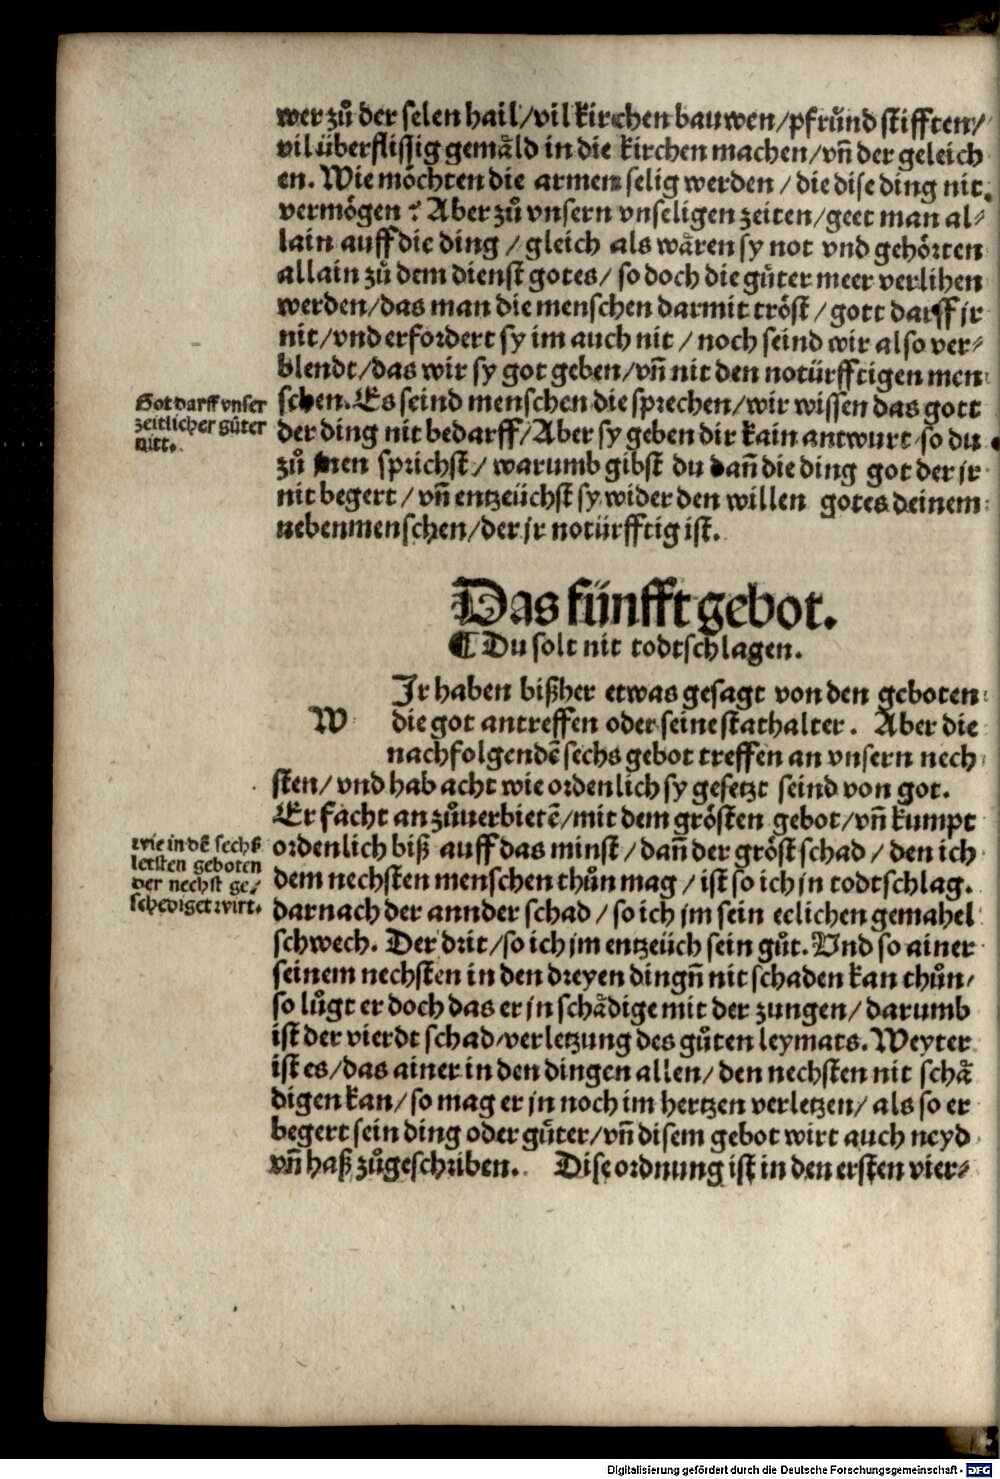 wer zů der selen hail/vil kirchen bauwen/pfrůnd stifften/
vil überflissig gemåld in die kirchen machen/vñ der geleich
en. Wie möchten die armen selig werden / die dise ding nit
vermögen ? Aber zů vnsern vnseligen zeiten/geet man al⸗
lain auff die ding / gleich als wåren sy not vnd gehörten
allain zů dem dienst gotes/ so doch die gůter meer verlihen
werden/das man die menschen darmit tröst / gott darff jr
nit/vnd erfordert sy im auch nit / noch seind wir also ver⸗
blendt/das wir sy got geben/vñ nit den notürfftigen men
schen. Es seind menschen die sprechen/wir wissen das gott
der ding nit bedarff/Aber sy geben dir kain antwurt so du
zů jnen sprichst/ warumb gibst du dañ die ding got der jr
nit begert / vñ entzeüchst sy wider den willen gotes deinem
nebenmenschen/der jr notürfftig ist.
Got darff vnser
zeitlicher gůter
nitt.
Das fünfft gebot.
¶ Du solt nit todtschlagen.
W Jr haben bißher etwas gesagt von den geboten
die got antreffen oder seine stathalter. Aber die
nachfolgendē sechs gebot treffen an vnsern nech
sten/ vnd hab acht wie ordenlich sy gesetzt seind von got.
Er facht an zůuerbietē/mit dem grösten gebot/vñ kumpt
ordenlich biß auff das minst / dañ der gröst schad / den ich
dem nechsten menschen thůn mag / ist so ich jn todtschlag.
darnach der annder schad / so ich jm sein eelichen gemahel
schwech. Der drit/so ich jm entzeüch sein gůt. Vnd so ainer
seinem nechsten in den dreyen dingñ nit schaden kan thůn/
so lůgt er doch das er jn schådige mit der zungen/ darumb
ist der vierdt schad/verletzung des gůten leymats. Weyter
ist es/das ainer in den dingen allen/ den nechsten nit schå
digen kan/ so mag er jn noch im hertzen verletzen/ als so er
begert sein ding oder gůter/vñ disem gebot wirt auch neyd
vñ haß zůgeschriben. Dise ordnung ist in den ersten vier⸗
wie in dē sechs
letsten geboten
der nechst ge⸗
schediget wirt.
Digitalisierung gefördert durch die Deutsche Forschungsgemeinschaft - DFG